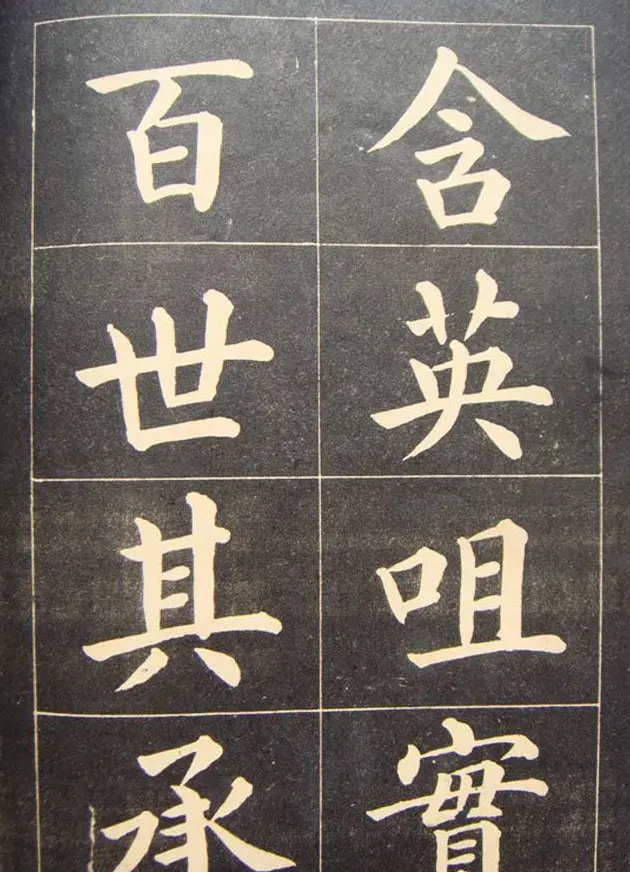 含英咀實
百世其承